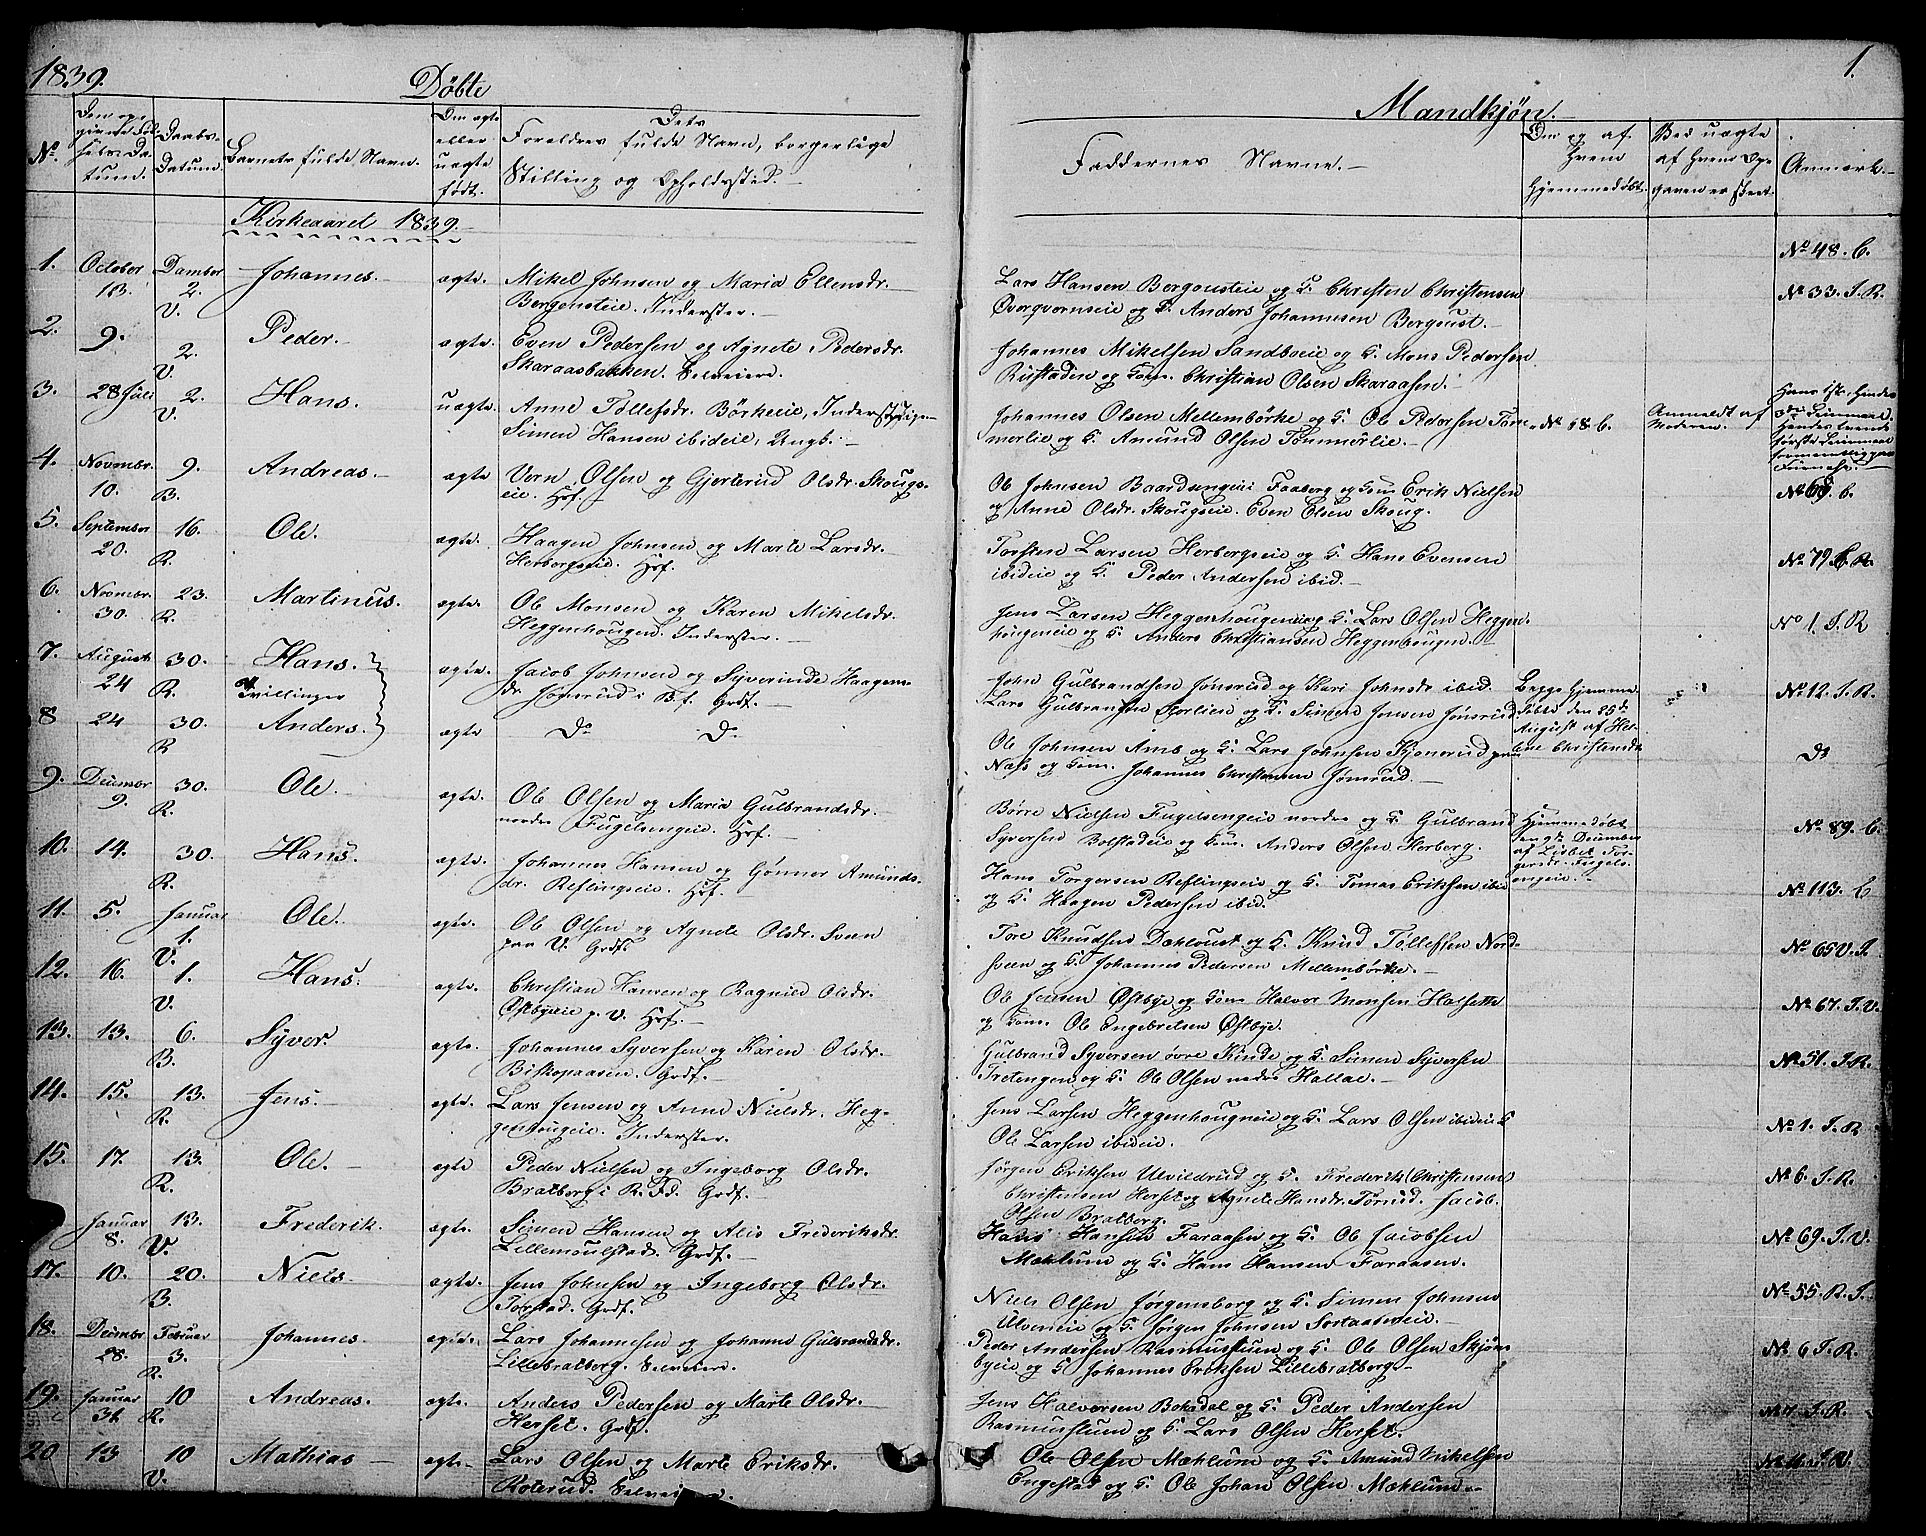 1839.
Døbte
Mandkjøn.
1.
No.
Daabs-
Datum.
Barnets fulde Navn.
Om ægte
eller
uægte
født.
Dets
Forældres fulde Navn, borgerlige
Stilling og Opholdssted.
Faddernes Navne.
Om og af
hvem
hjemmedøbt.
Anmærk.
Kirkeaaret 1839.
1. October
13.
2.
V.
Johannes.
ægte.
Mikel Johnsen og Maria Ellensdr.
Bergensteie. Inderster.
Lars Hansen Bergousteie og G. Christen Christensen
og G. Anders Johannesen Bergoust.
No 48. C.
No 33. I. R.
2. 9. 2.
V.
Peder.
ægte.
Even Pedersen og Agnete Pedersdr.
Skaraasbakken. Selveiere.
Johannes Mikelsen Sandboeie og G. Mons Pedersen
Rustaden og Gom. Christian Olsen Skaraasen.
3. 28 Juli 2.
V.
Hans.
uægte.
Anne Tollefsdr. Børkeeie, Inderst
Simen Hansen ibideie, Ungk.
Johannes Olsen Mellembörke og G. Ole Pedersen Töm-
merlie og G. Amund Olsen Tömmerlie.
No 18 C.
Anmeldt af
Moderen.
4. Novmbr.
10.
9.
B.
Andreas.
ægte
Olsen og Gjertrud Olsdr. Skougs-
eie. Hsf.
Ole Johnsen Baardsengeie Faaberg og Gom Erik Nielsen
og Anne Olsdr. Skougseie. Even Elsen Skoug.
No 68. C.
5. September
20.
16.
R.
Ole.
ægte.
Haagen Johnsen og Marte Larsdr.
Herborgseie. Hsf.
Torsten Larsen Herborgseie og G. Hans Evensen
ibideie og G. Peder Andersen ibid.
No 79. C. R.
6. Novmbr.
30.
23.
R.
Martinus.
ægte.
Ole Monsen og Karen Mikelsdr.
Heggenhougen. Inderster.
Jens Larsen Heggenhougeneie og G. Lars Olsen Heggen-
hougeneie og G. Anders Christiansen Heggenhougen.
No 1. I. R
7. August
24
30.
R.
Hans.
Tvillinger
ægte.
Jacob Johnsen og Syverinde Haagens-
dr Jønsrud i B.f. Grdf.
John Gulbrandsen Jønsrud og Kari Johnsdr ibid.
Lars Gulbransen Sorlien og G. Simen Jensen Jønsrud.
Begge hjemme-
døbte den 25de
August af
No 12. I. R.
8 24 30.
R
Anders.
ægte
Do Do
Ole Johnsen Amb og G. Lars Johnsen Kjonerud paa
Næss og Gom. Johannes Christensen Jønsrud.
Do
9. Decembr
9.
30.
R.
Ole.
ægte.
Ole Olsen og Maria Gulbrandsdr.
nordre Fugelsengeie. Hsf.
Børre Nielsen Fugelsengeie nordre og G. Gulbrand
Syversen Bolstadeie og Gom. Anders Olsen Herberg.
Hjemmedøbt
den 9de Decembr
af Lisbet Tor-
gersdr. Fugels-
engeie.
No 89. C.
10. 14. 30.
R.
Hans.
ægte.
Johannes Hansen og Gønnor Amunds-
dr. Reflingseie. Hsf.
Hans Torgersen Reflingseie og G. Tomas Eriksen ibid
og G. Haagen Pedersen ibid.
No 113. C
11. 5. Januar
1.
V.
Ole.
ægte.
Ole Olsen og Agnete Olsdr. Sveen
paa V. Grdf.
Tore Knudsen Dæhloust og G. Knud Tollefsen Nord-
sveen og G. Johannes Pedersen Mellembörke.
No 65 V. I
12. 16. 1.
V.
Hans.
ægte.
Christian Hansen og Ragnild Olsdr.
Østbyeie p. V. Hsf.
Ole Jensen Østbye og Gom. Halvor Monsen Halsetts
og Gom. Ole Engebretsen Østbye.
No 67. I. V.
13. 13. 6.
B.
Syver.
ægte.
Johannes Syversen og Karen Olsdr.
Biskopaasen. Grdf.
Gulbrand Syversen øvre Kinde og G. Simen Syversen
Tretengen og G. Ole Olsen nedre Hallae.
No 51. I. R.
14. 15. 13.
R.
Jens.
ægte.
Lars Jensen og Anne Nielsdr. Heg-
genhougeie. Inderster.
Jens Larsen Heggenhougneie og G. Lars Olsen ibideie G
Ole Larsen ibideie.
No 1. I. R
15. 17. 13.
R.
Ole.
ægte
Peder Nielsen og Ingeborg Olsdr.
Bratborg i R. Fd. Grdf.
Jörgen Eriksen Ulvildrud og G. Frederik (Christensen)
Christensen Herset og Agnete Hansdr. Torrud. Jacob
Olsen Bratberg.
No 6. I. R.
Januar
8.
13.
V.
Frederik.
ægte.
Simen Hansen og Alis Frederiksdr.
Lillemoulstad. Grdf.
Hans Hansen Faraasen og G. Ole Jacobsen
Mæhlum og G. Hans Hansen Faraasen.
No 69. I. V.
17. 10. 20.
B.
Niels.
ægte.
Jens Johnsen og Ingeborg Olsdr.
Torstad. Grdf.
Niels Olsen Jørgensborg og G. Simen Johnsen
Ulveneie og G. Jørgen Johnsen Sortaaseneie.
No 55. R. I.
18. Decmbr
28.
Februar
3.
R.
Johannes.
ægte.
Lars Johannesen og Johanne Gulbrandsdr.
Lillebratberg. Selveiere.
Peder Andersen Rasmuslium og G. Ole Olsen Skjøns-
byeie og G Johannes Eriksen Lillebratberg.
No 6 I. R.
19. Januar
31.
10
R.
Andreas.
ægte.
Anders Pedersen og Marte Olsdr.
Herset. Grdf.
Jens Halvorsen Bohadal og G. Peder Andersen
Rasmuslund og G. Lars Olsen Herset.
No 7. I. R.
20 13 10
V.
Mathias
ægte.
Lars Olsen og Marte Eriksdr.
Roterud. Selveiere.
Ole Olsen Mæhlum og G. Amund Mikelsen
Engestad og G. Ole Johan Olsen Mæhlum.